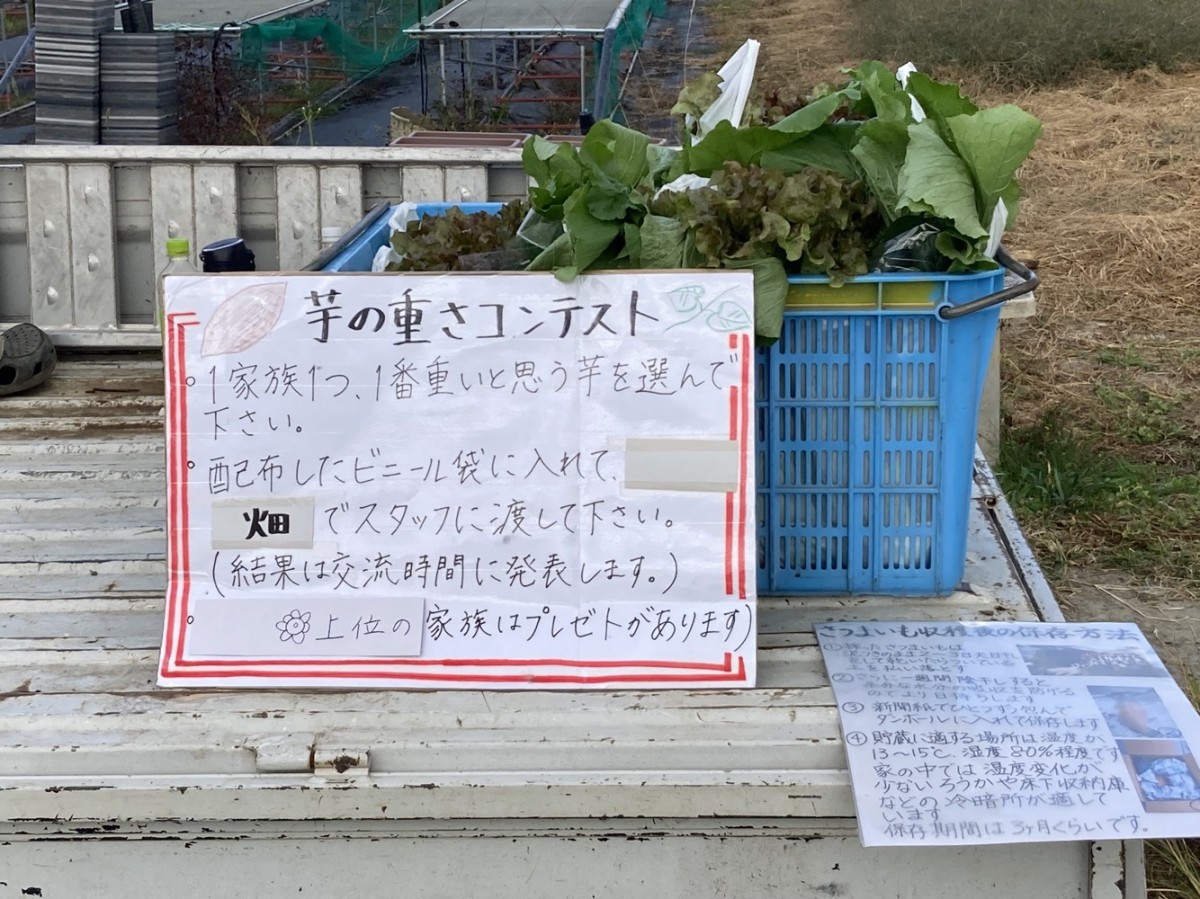 芋の重さコンテスト
。1家族1つ、1番重いと思う芋を選んで
下さい。
。配布したビニール袋に入れて、
畑でスタッフに渡して下さい。
(結果は交流時間に発表します。)
。上位の家族はプレゼトがあります)
さつまいも収穫後の保存方法
① さつまいもは
②さらに一週間陰干しすると
余分な水分の吸収を防げる
のでより日持ちします
③ 新聞紙でひとつずつ包んで
ダンボールに入れて保存します
④ 貯蔵に適する場所は湿度が
13〜15℃、湿度80%程度です
家の中では湿度変化が
少ないろうかや床下収納庫
などの冷暗所が適して
います
保存期間は3ヶ月くらいです。